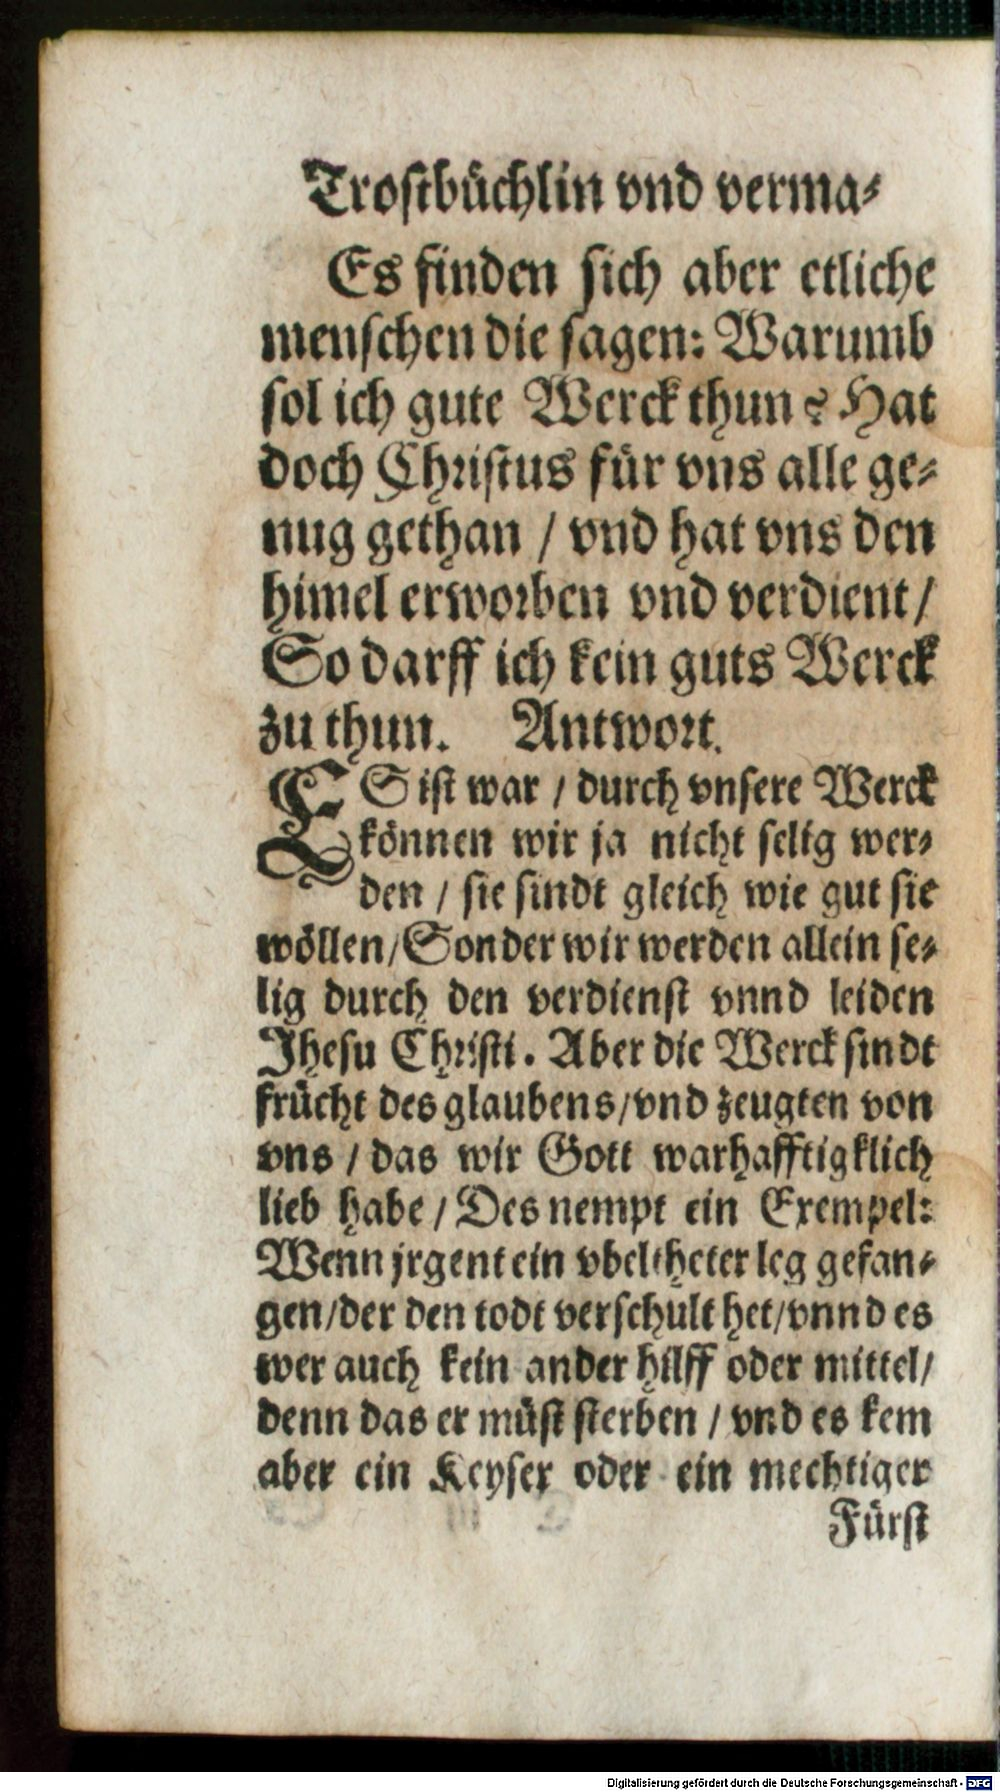 Trostbüchlin vnd verma⸗
Es finden sich aber etliche
menschen die sagen: Warumb
sol ich gute Werck thun? Hat
doch Christus für vns alle ge⸗
nug gethan / vnd hat vns den
himel erworben vnd verdient /
So darff ich kein guts Werck
zu thun. Antwort.
ES ist war / durch vnsere Werck
können wir ja nicht selig wer⸗
den / sie sindt gleich wie gut sie
wöllen / Sonder wir werden allein se⸗
lig durch den verdienst vnnd leiden
Jhesu Christi. Aber die Werck sindt
frücht des glaubens / vnd zeugten von
vns / das wir Gott warhafftigklich
lieb habe / Des nempt ein Exempel:
Wenn jrgent ein vbeltheter leg gefan⸗
gen / der den todt verschult het / vnnd es
wer auch kein ander hilff oder mittel /
denn das er müst sterben / vnd es kem
aber ein Keyser oder ein mechtiger
Fürst
Digitalisierung gefördert durch die Deutsche Forschungsgemeinschaft - DFG